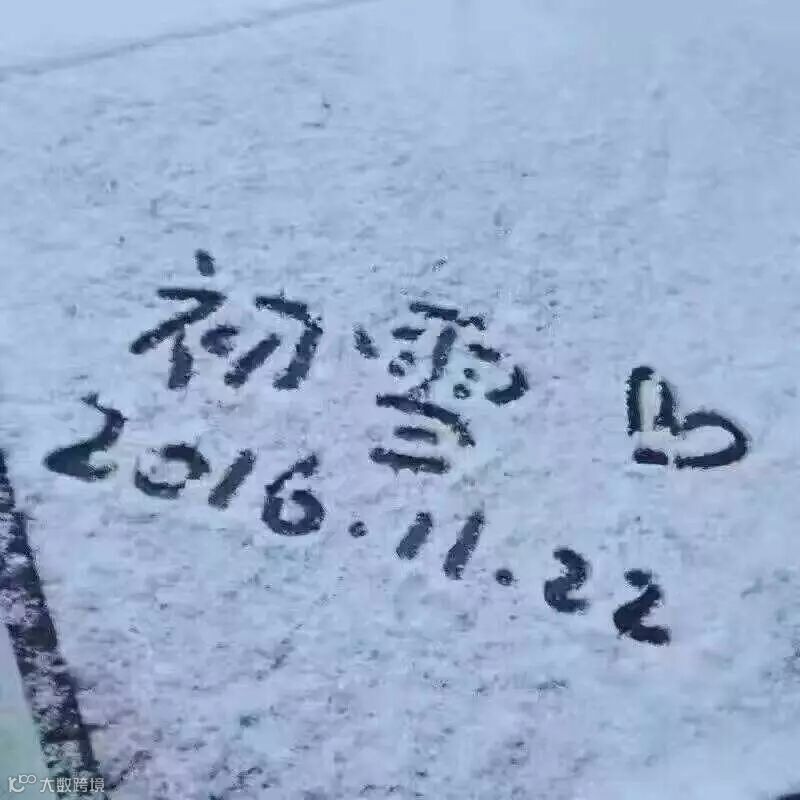 初雪
2016.11.22
大数跨境